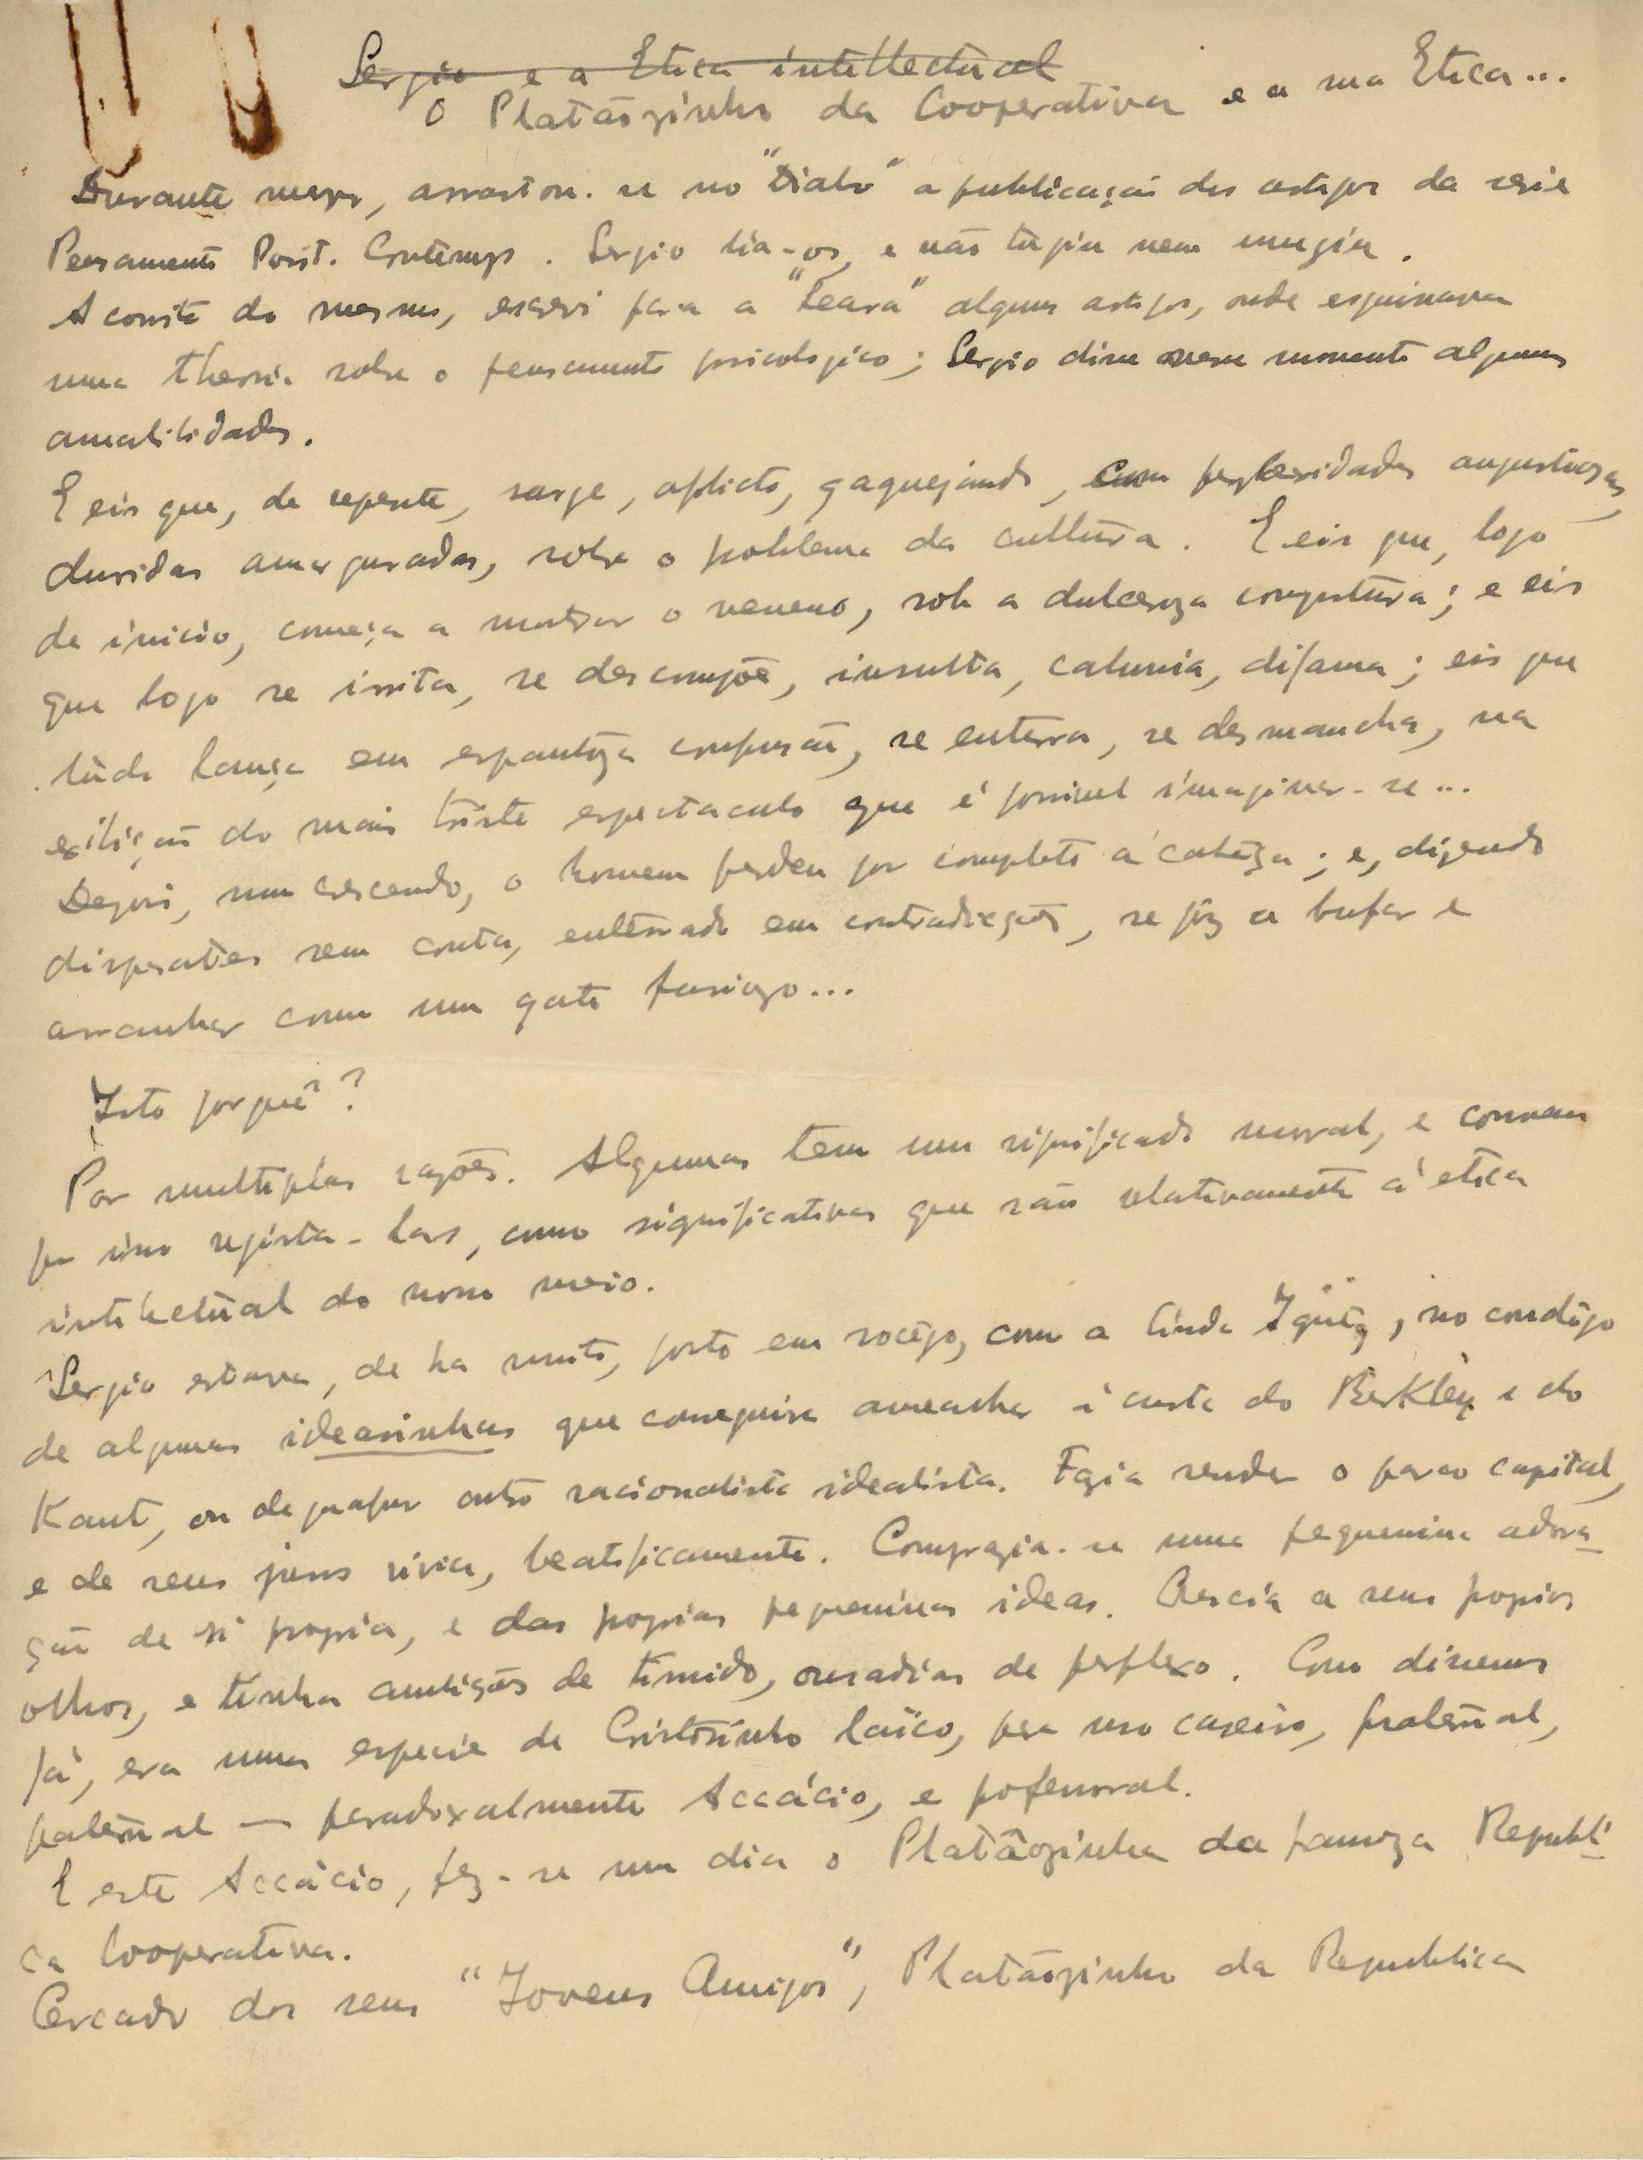 Sergio e a Etica intellectual
O Platãozinho da Cooperativa e a sua Etica...
Durante mezes, arrastou-se no "Diabo" a publicação dos artigos da serie
Pensamento Port. Contemp. Sergio lia-os, e não tugiu nem mugiu.
Aconite do mesmo, escrevi para a "Seara" alguns artigos, onde esquinava
uma theoria sobre o pensamento psicologico; Sergio disse nesse momento algumas
amabilidades.
E eis que, de repente, surge, aflicto, gaguejando, com perplexidades angustiosas,
duvidas amarguradas, sobre o problema da cultura. E eis que, logo
de inicio, começa a mostrar o veneno, sob a dulceroza compustura; e eis
que logo se irrita, se descompõe, insulta, calunia, difama; eis que
tudo lança em espantoza confusão, se enterra, se desmancha, na
exibição do mais triste espectaculo que é possivel imaginar-se...
Depois, num crescendo, o homem perdeu por completo a cabeça; e, dizendo
disparates sem conta, enterrado em contradicções, se poz a bufar e
arranhar como um gato furiozo...
Isto porquê?
Por multiplas razões. Algumas tem um significado moral, e convem
por isso regista-las, como significativas que são relativamente á etica
intelectual do nosso meio.
Sergio estava, de ha muito, posto em socego, com a linda Ignêz, no condigo
de algumas ideasinhas que conseguira amealhar á custa do Berkley e do
Kant, ou de qualquer outro racionalista idealista. Fazia render o parco capital,
e de seus juros vivia, beatificamente. Comprazia-se numa pequenina adora-
ção de si propria, e das proprias pequeninas ideas. Crescia a seus proprios
olhos, e tinha ambições de timido, ousadias de perplexo. Como dissemos
já, era uma especie de Cristosinho laïco, para uso caseiro, fraternal,
paternal — paradoxalmente Accácio, e pofensoral.
E este Accácio, fez-se um dia o Platãozinho da famoza Republi-
ca Cooperativa.
Cercado dos seus "Jovens Amigos", Platãozinho da Republica